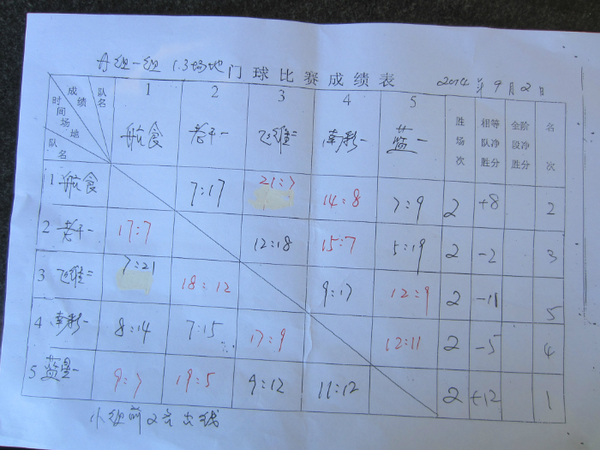 A组一组 1.3场地门球比赛成绩表 2014年9月2日
成绩 队名 时间 场地 队名 1 2 3 4 5 胜场次 相等队净胜分 全阶段净胜分 名次
航食 老干一 飞维二 南彩一 蓝一
1 航食 7:17 21:7 14:8 7:9 2 +8 2
2 老干一 17:7 12:18 15:7 5:19 2 -2 3
3 飞维二 7:21 18:12 9:17 12:9 2 -11 5
4 南彩一 8:14 7:15 17:9 12:11 2 -5 4
5 蓝星一 9:7 19:5 9:12 11:12 2 +12 1
小组前2名出线